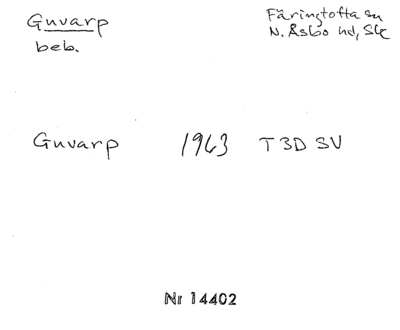 Guvarp
beb.
Färingtofta sn
N. Åsbo hd, Sk
Guvarp 1963 T3D SV
Nr 14402